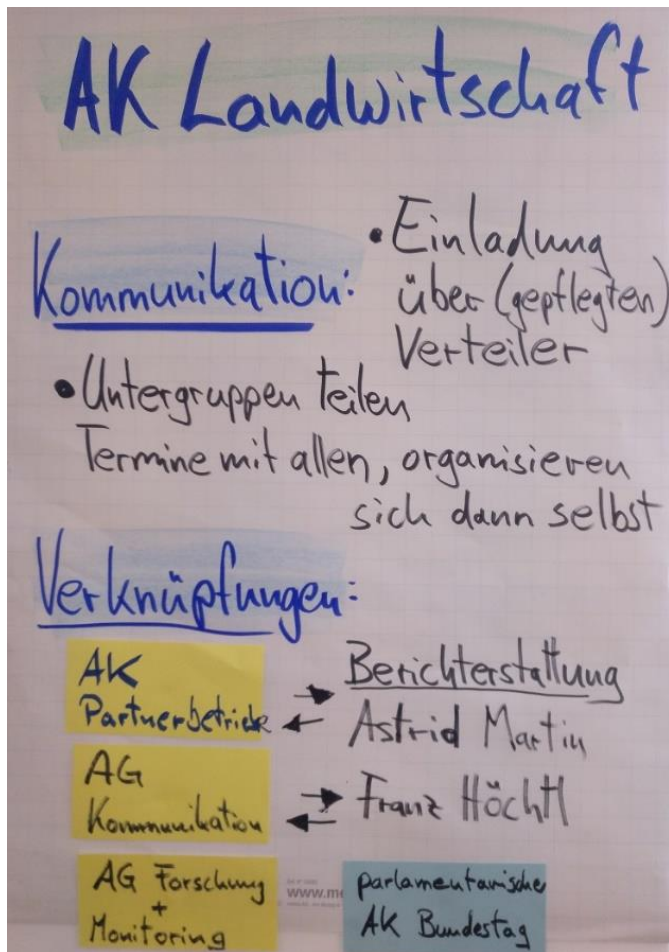 AK Landwirtschaft
Kommunikation:
• Einladung
über (gepflegten)
Verteiler
• Untergruppen teilen
Termine mit allen, organisieren
sich dann selbst
Verknüpfungen:
AK
Partnerbetriebe
Berichterstattung
Astrid Martin
AG
Kommunikation
Franz Höchtl
AG Forschung
+
Monitoring
www.me
parlamentarischer
AK Bundestag